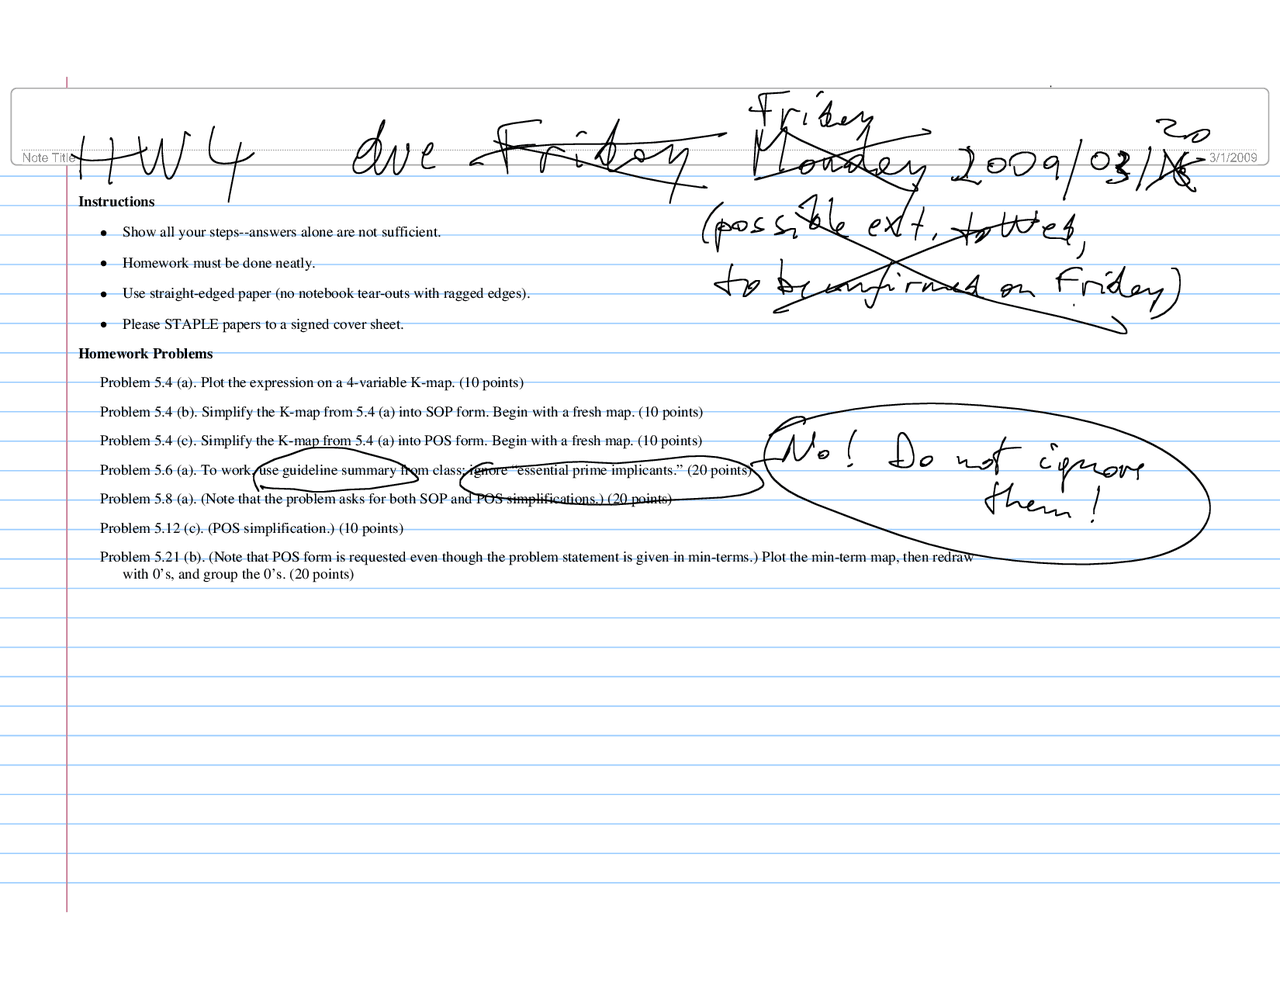 Friday
HW4 due Friday Monday 2009/03/ 20
Note Title
3/1/2009
Instructions
(possible ext. to Wed,
• Show all your steps--answers alone are not sufficient.
• Homework must be done neatly.
to be confirmed on Friday)
• Use straight-edged paper (no notebook tear-outs with ragged edges).
• Please STAPLE papers to a signed cover sheet.
Homework Problems
Problem 5.4 (a). Plot the expression on a 4-variable K-map. (10 points)
Problem 5.4 (b). Simplify the K-map from 5.4 (a) into SOP form. Begin with a fresh map. (10 points)
Problem 5.4 (c). Simplify the K-map from 5.4 (a) into POS form. Begin with a fresh map. (10 points)
Problem 5.6 (a). To work, use guideline summary from class; ignore “essential prime implicants.” (20 points)
No! Do not ignore
them!
Problem 5.8 (a). (Note that the problem asks for both SOP and POS simplifications.) (20 points)
Problem 5.12 (c). (POS simplification.) (10 points)
Problem 5.21 (b). (Note that POS form is requested even though the problem statement is given in min-terms.) Plot the min-term map, then redraw
with 0’s, and group the 0’s. (20 points)